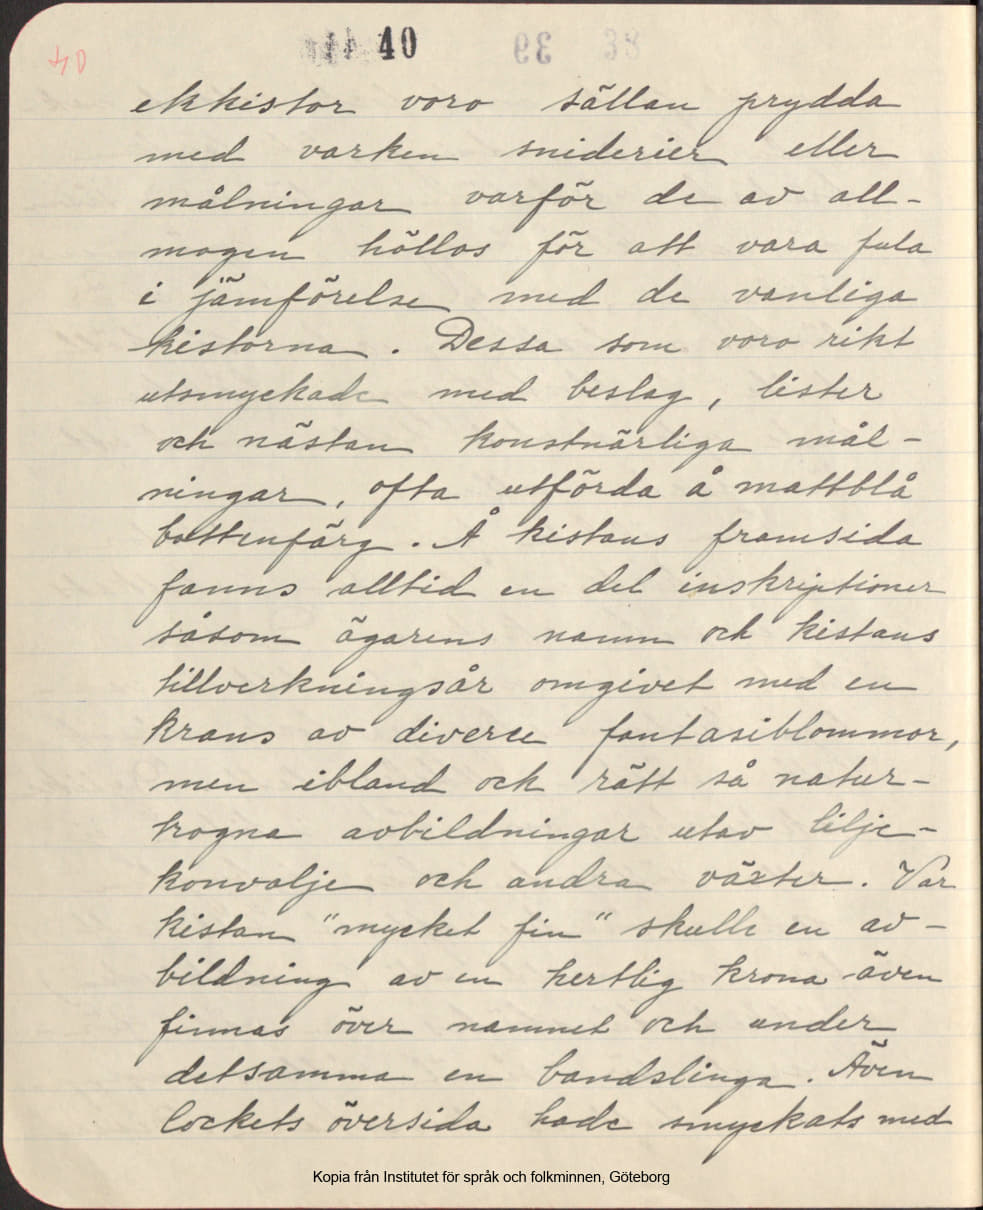 40
40 39 38
ekkistor voro sällan prydda
med varken sniderier eller
målningar varför de av all-
mogen höllos för att vara fula
i jämförelse med de vanliga
kistorna. Dessa som voro rikt
utsmyckade med beslag, lister
och nästan konstnärliga mål-
ningar, ofta utförda å mattblå
bottenfärg. Å kistans framsida
fanns alltid en del inskriptioner
såsom ägarens namn och kistans
tillverkningsår omgivet med en
krans av diverse fantasiblommor,
men ibland och rätt så natur-
trogna avbildningar utav lilje-
konvalje och andra växter. Var
kistan "mycket fin" skulle en av-
bildning av en hertlig krona även
finnas över namnet och under
detsamma en bandslinga. Även
lockets översida hade smyckats med
Kopia från Institutet för språk och folkminnen, Göteborg